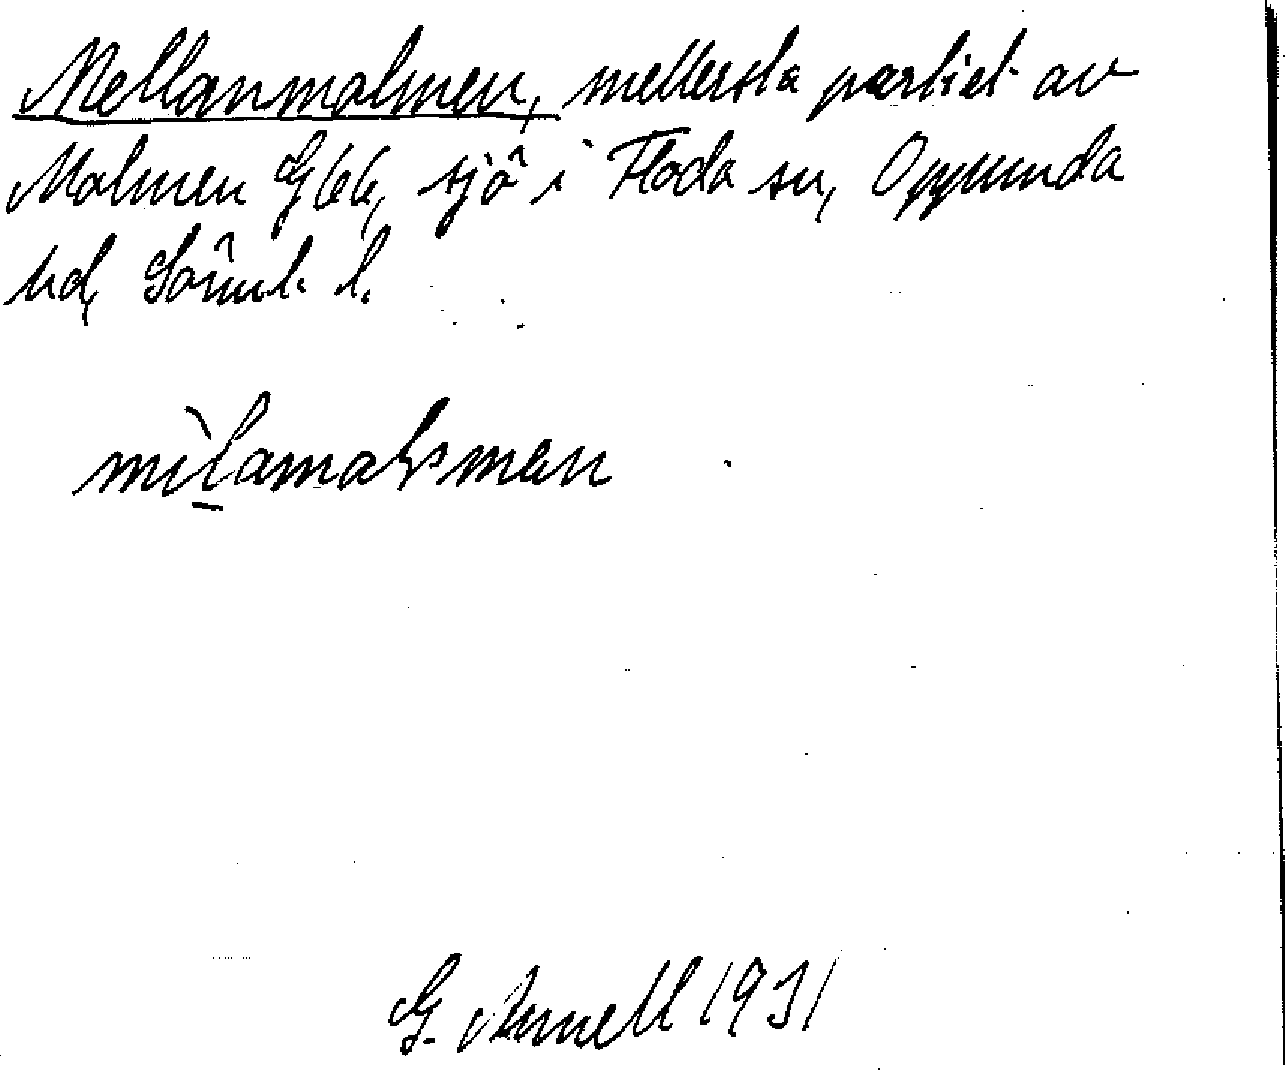 Mellanmalmen, mellersta partiet av
Malmen G66, sjö i Floda sn, Oppunda
hd, Sörml. l.
G. Arnell 1931